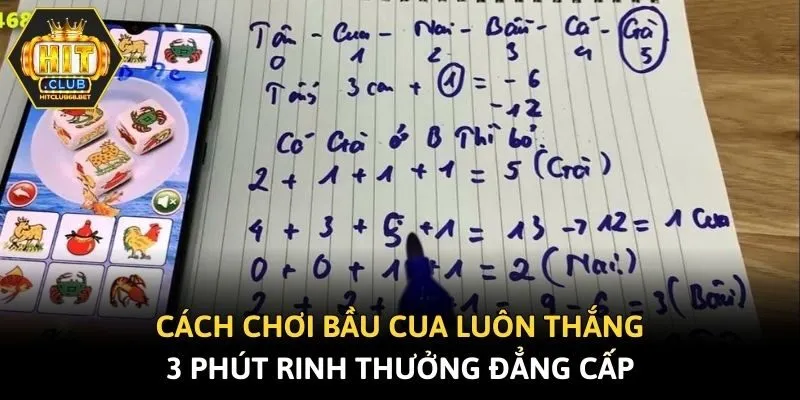 468
HIT
.CLUB
HITCLUB68.BET
Tôm - Cua - Nai - Bầu - Cá - Gà
0 1 2 3 4 5
Tổng 3 con + 1 = - 6
- 12
Có Gà ở B Thì bỏ.
2 + 1 + 1 + 1 = 5 (Gà)
4 + 3 + 5 + 1 = 13 → 12 = 1 Cua
0 + 0 + 1 + 1 = 2 (Nai)
9 - 6 = 3 (Bầu)
CÁCH CHƠI BẦU CUA LUÔN THẮNG
3 PHÚT RINH THƯỞNG ĐẲNG CẤP